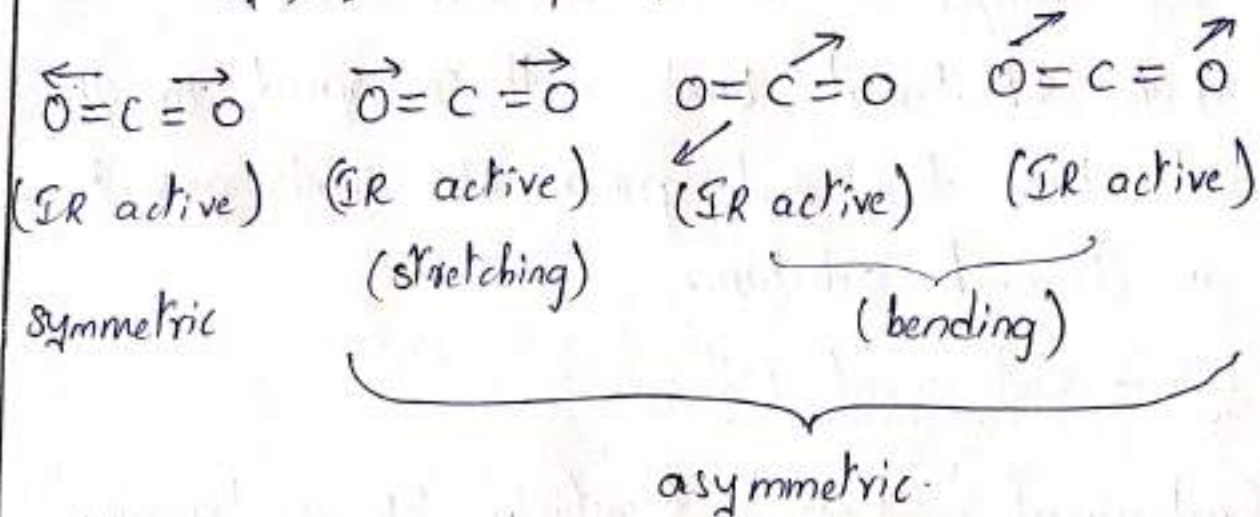 O=C=O O=C=O O=C=O O=C=O
(IR active) (IR active) (IR active) (IR active)
(stretching)
symmetric (bending)
asymmetric.